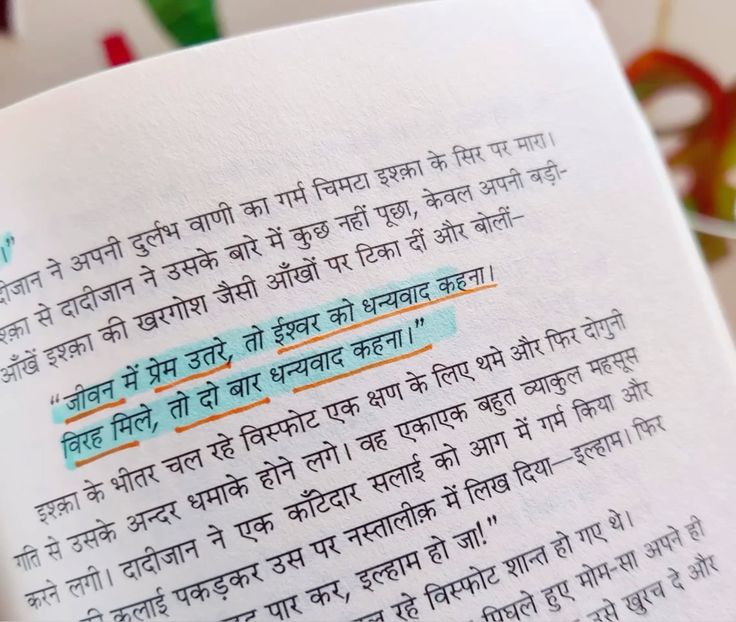 ।”
दीजान ने अपनी दुर्लभ वाणी का गर्म चिमटा इश्क़ा के सिर पर मारा।
श्क़ा से दादीजान ने उसके बारे में कुछ नहीं पूछा, केवल अपनी बड़ी-
आँखें इश्क़ा की खरगोश जैसी आँखों पर टिका दीं और बोलीं—
“जीवन में प्रेम उतरे, तो ईश्वर को धन्यवाद कहना।
विरह मिले, तो दो बार धन्यवाद कहना।”
इश्क़ा के भीतर चल रहे विस्फोट एक क्षण के लिए थमे और फिर दोगुनी
गति से उसके अन्दर धमाके होने लगे। वह एकाएक बहुत व्याकुल महसूस
करने लगी। दादीजान ने एक काँटेदार सलाई को आग में गर्म किया और
कलाई पकड़कर उस पर नस्तालीक़ में लिख दिया—इल्हाम। फिर
पार कर, इल्हाम हो जा!”
रहे विस्फोट शान्त हो गए थे।
पिघले हुए मोम-सा अपने ही
उसे खुरच दे और